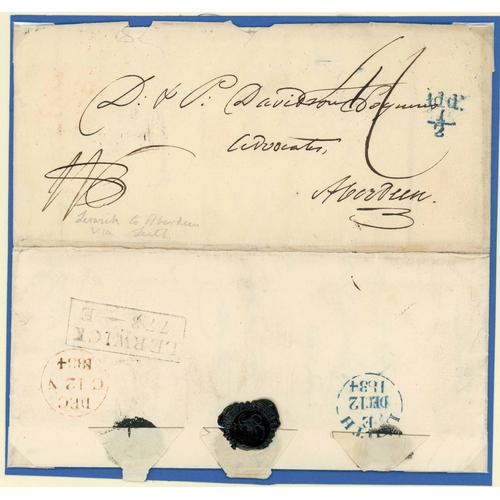 D: & P: Davidson Esquires
Advocates,
Aberdeen.
Add l.
1/2
Lerwick to Aberdeen
via Leith
LERWICK
DEC
C 12 N
1834
LEITH
E
DEC 12
1834